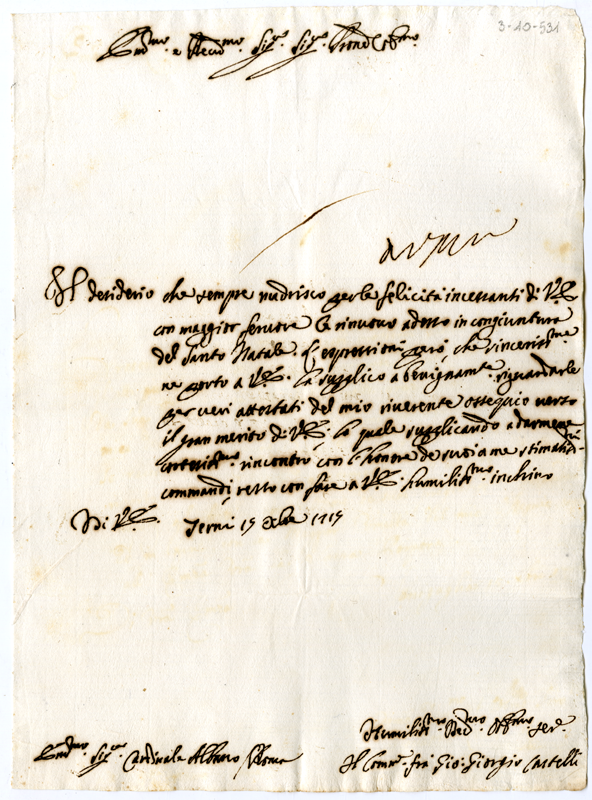 3-10-531
Em.mo e Rev.mo Sig.re Sig.re Pron Col.mo
Il desiderio che sempre nudrisco per le felicità incessanti di V.E.
con maggior fervore le rinuovo adesso in congiuntura
del Santo Natale. L'espressioni però, che sincerissi.me
ne porto a V.E. la supplico a benignam.te riguardarle
per veri attestati del mio riverente ossequio verso
il gran merito di V.E. la quale supplicando a darmene
cortesiss.mo rincontro con l'honore de suoi a me stimatis-
commandi, resto con fare a V.E. humiliss.mo inchino
Di V.E. Terni 15 Xbre 1715
Humiliss.mo Dev.mo Obb.mo Ser.
Em.mo Sig.re Cardinale Albano Roma
Il Com.re frà Gio: Giorgio Castelli